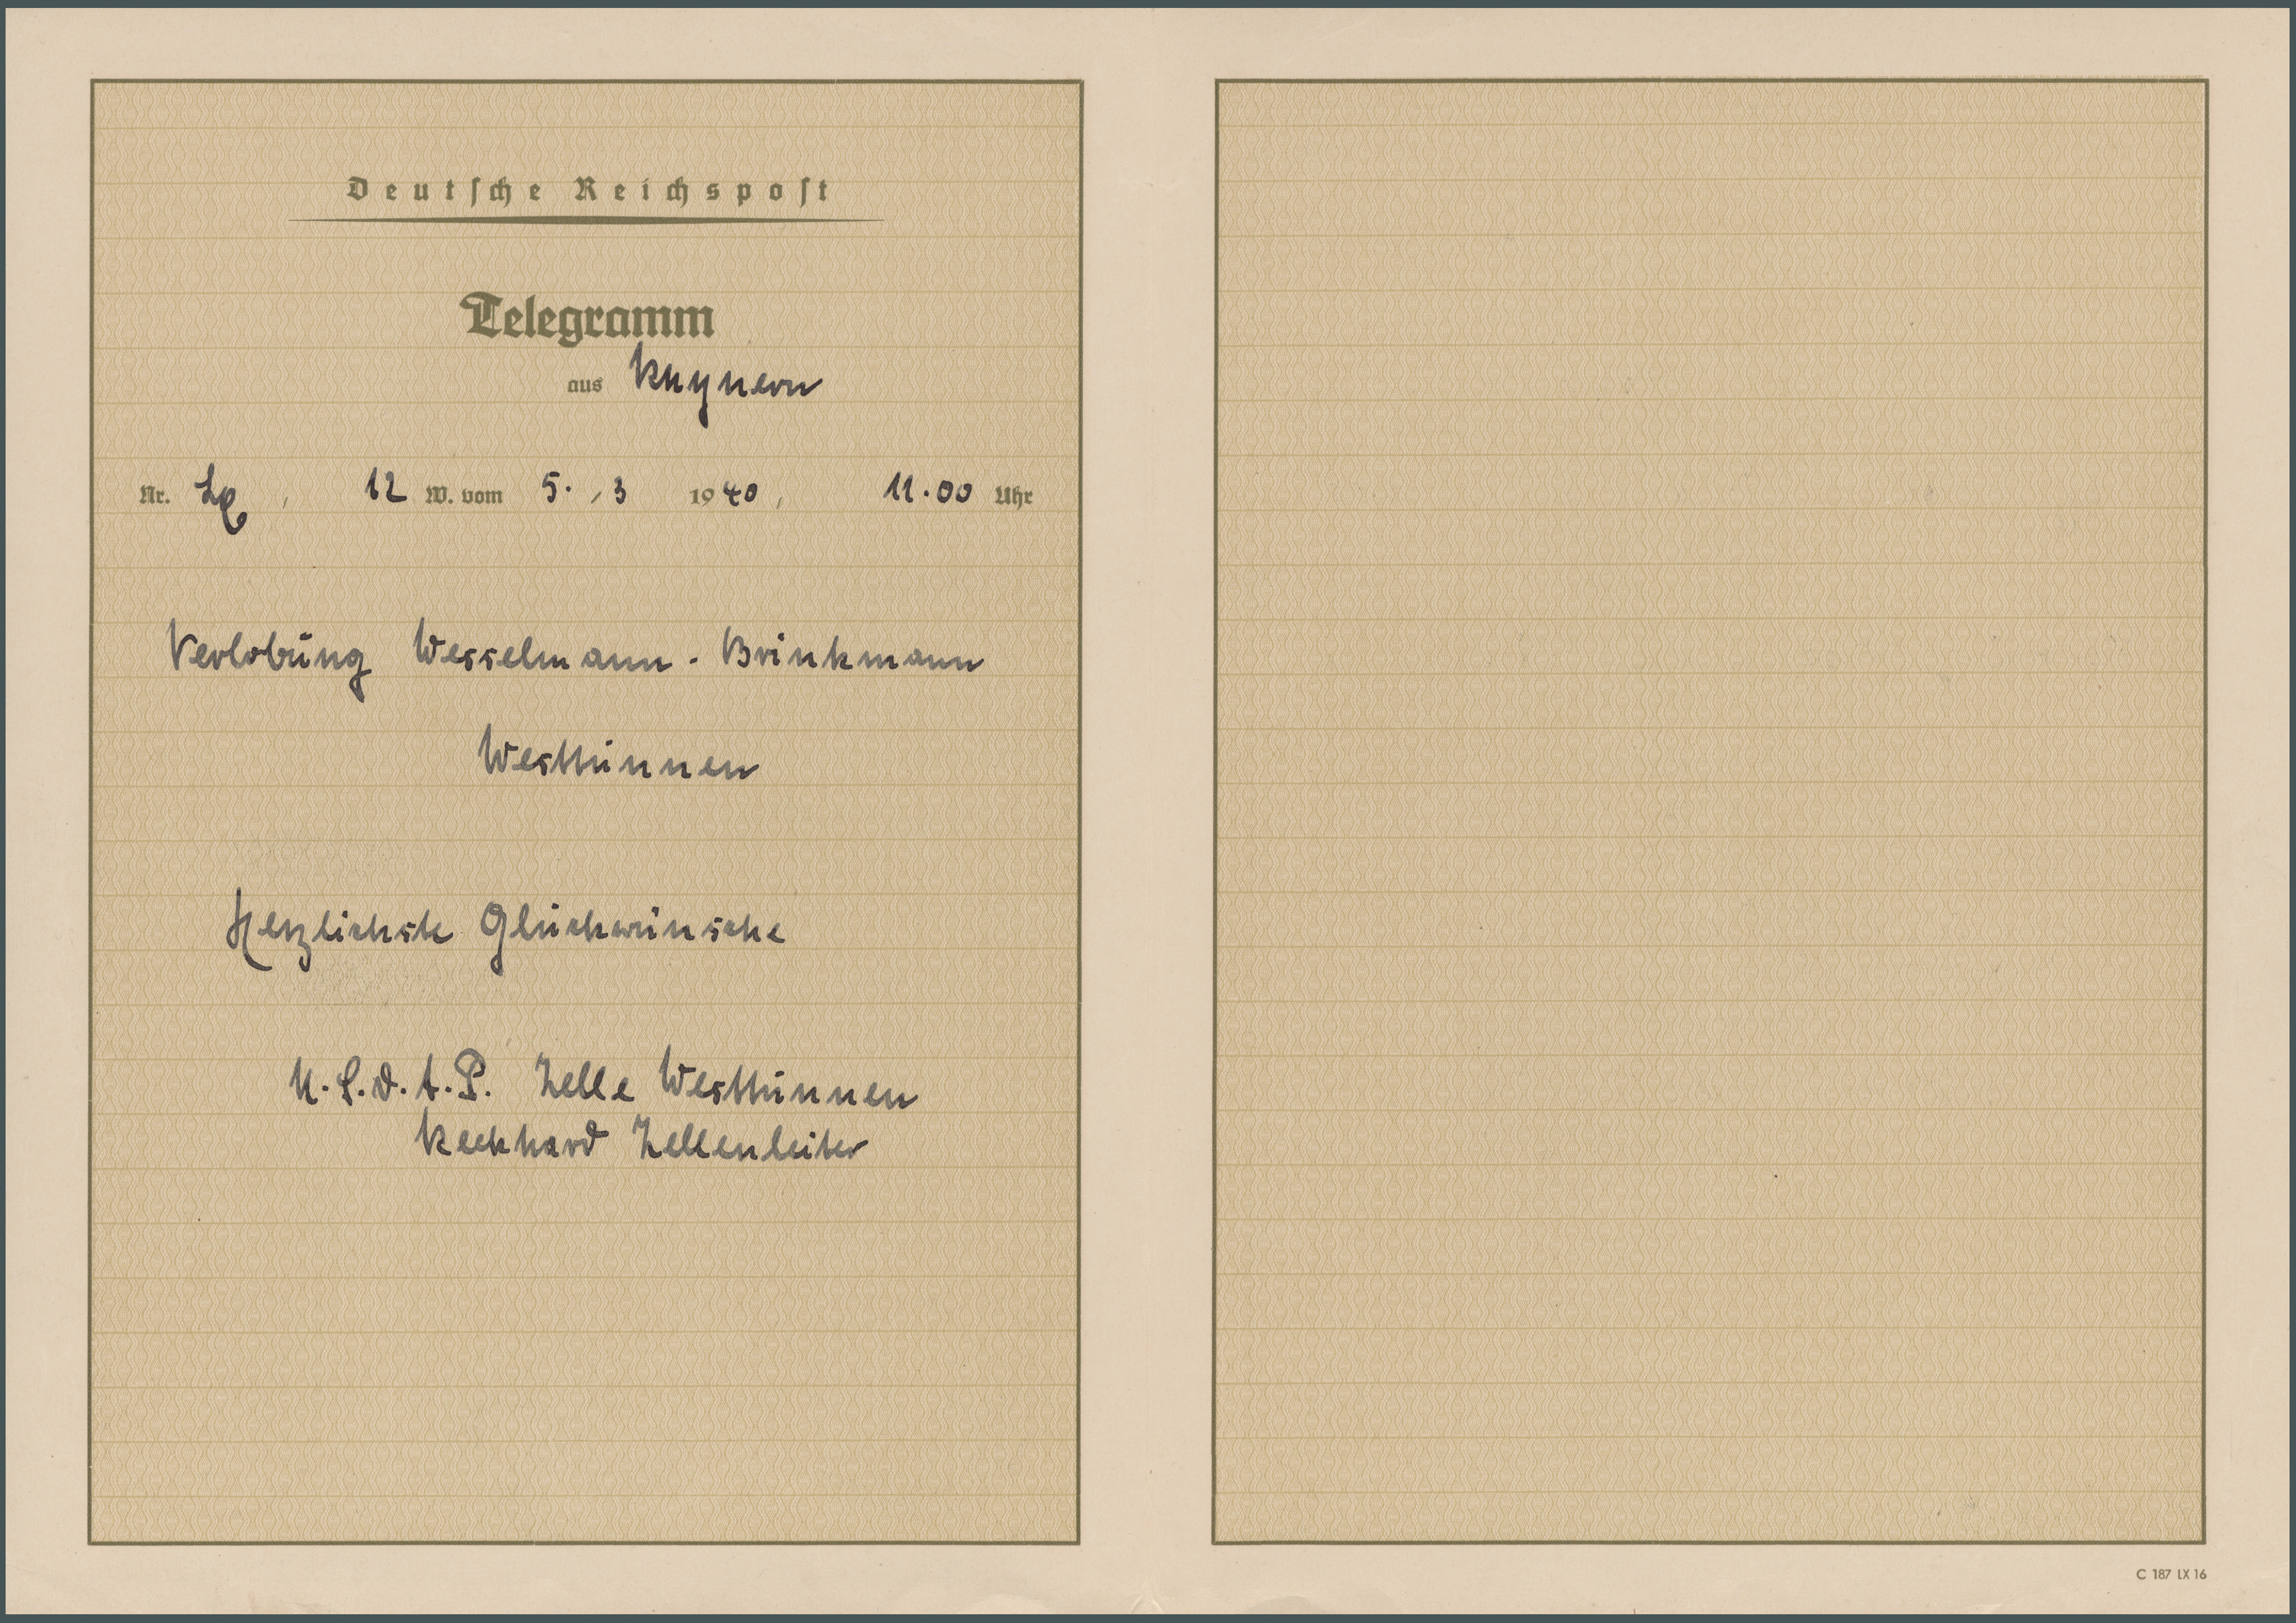 Deutsche Reichspost
Telegramm
aus Rhynern
Nr. Lx, 12 W. vom 5. / 3 1940, 11.00 Uhr
Verlobung Wesselmann - Brinkmann
Westtünnen
Herzlichste Glückwünsche
N.S.D.A.P. Zelle Westtünnen
Reckhard Zellenleiter
C 187 LX 16